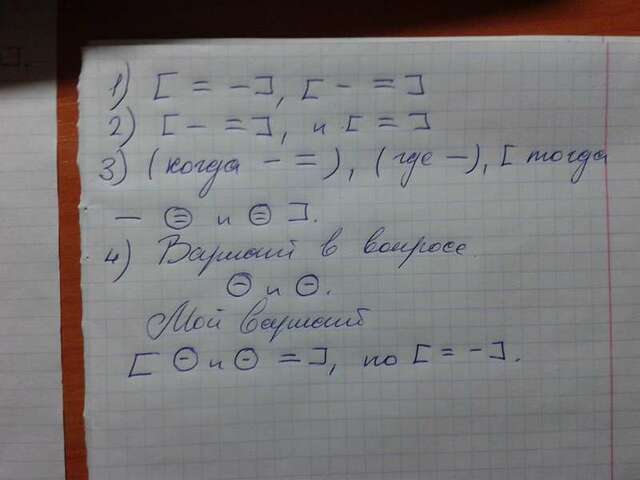 1) [ = – ], [ – = ]
2) [ – = ], и [ = ]
3) (когда – = ), (где –), [ тогда
– ⊜ и ⊜ ].
4) Вариант в вопросе.
⊖ и ⊖.
Мой вариант
[ ⊖ и ⊖ = ], но [ = – ].